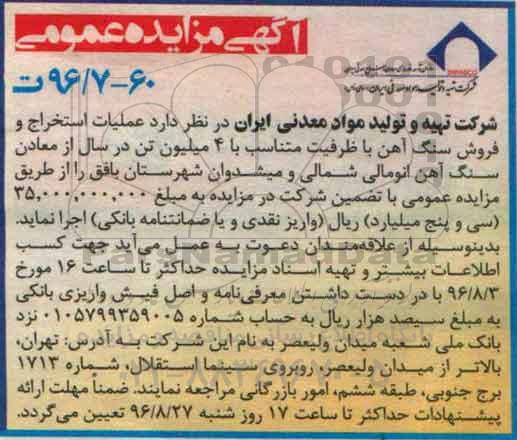 آگهی مزایده عمومی
۹۶/۷-۶۰ت
IMPASCO
شرکت تهیه و تولید مواد معدنی ایران
شرکت تهیه و تولید مواد معدنی ایران در نظر دارد عملیات استخراج و
فروش سنگ آهن با ظرفیت متناسب با ۴ میلیون تن در سال از معادن
سنگ آهن انومالی شمالی و میشدوان شهرستان بافق را از طریق
مزایده عمومی با تضمین شرکت در مزایده به مبلغ ۳۵,۰۰۰,۰۰۰,۰۰۰
(سی و پنج میلیارد) ریال (واریز نقدی و یا ضمانتنامه بانکی) اجرا نماید.
بدینوسیله از علاقه‌مندان دعوت به عمل می‌آید جهت کسب
اطلاعات بیشتر و تهیه اسناد مزایده حداکثر تا ساعت ۱۶ مورخ
۹۶/۸/۳ با در دست داشتن معرفی‌نامه و اصل فیش واریزی بانکی
به مبلغ سیصد هزار ریال به حساب شماره ۰۱۰۵۷۹۹۳۵۹۰۰۵ نزد
بانک ملی شعبه میدان ولیعصر به نام این شرکت به آدرس: تهران،
بالاتر از میدان ولیعصر، روبروی سینما استقلال، شماره ۱۷۱۳
برج جنوبی، طبقه ششم، امور بازرگانی مراجعه نمایند. ضمناً مهلت ارائه
پیشنهادات حداکثر تا ساعت ۱۷ روز شنبه ۹۶/۸/۲۷ تعیین می‌گردد.
ParsNamadData